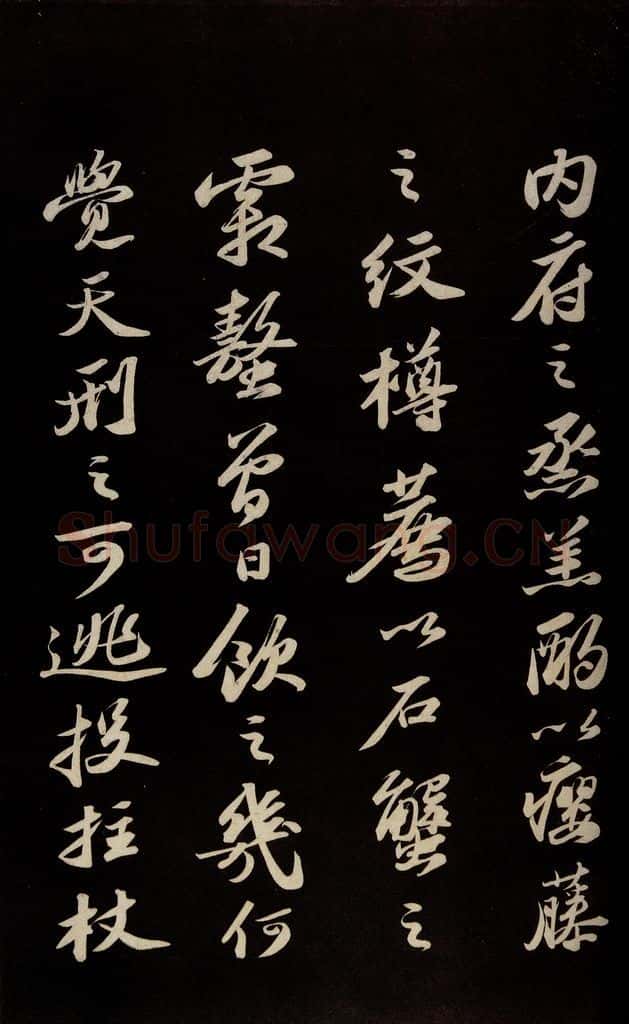 内府之烝羔酌以癭藤
之紋樽薦以石蟹之
霜螯曾日飲之幾何
覺天刑之可逃投拄杖
Shufawang.CN